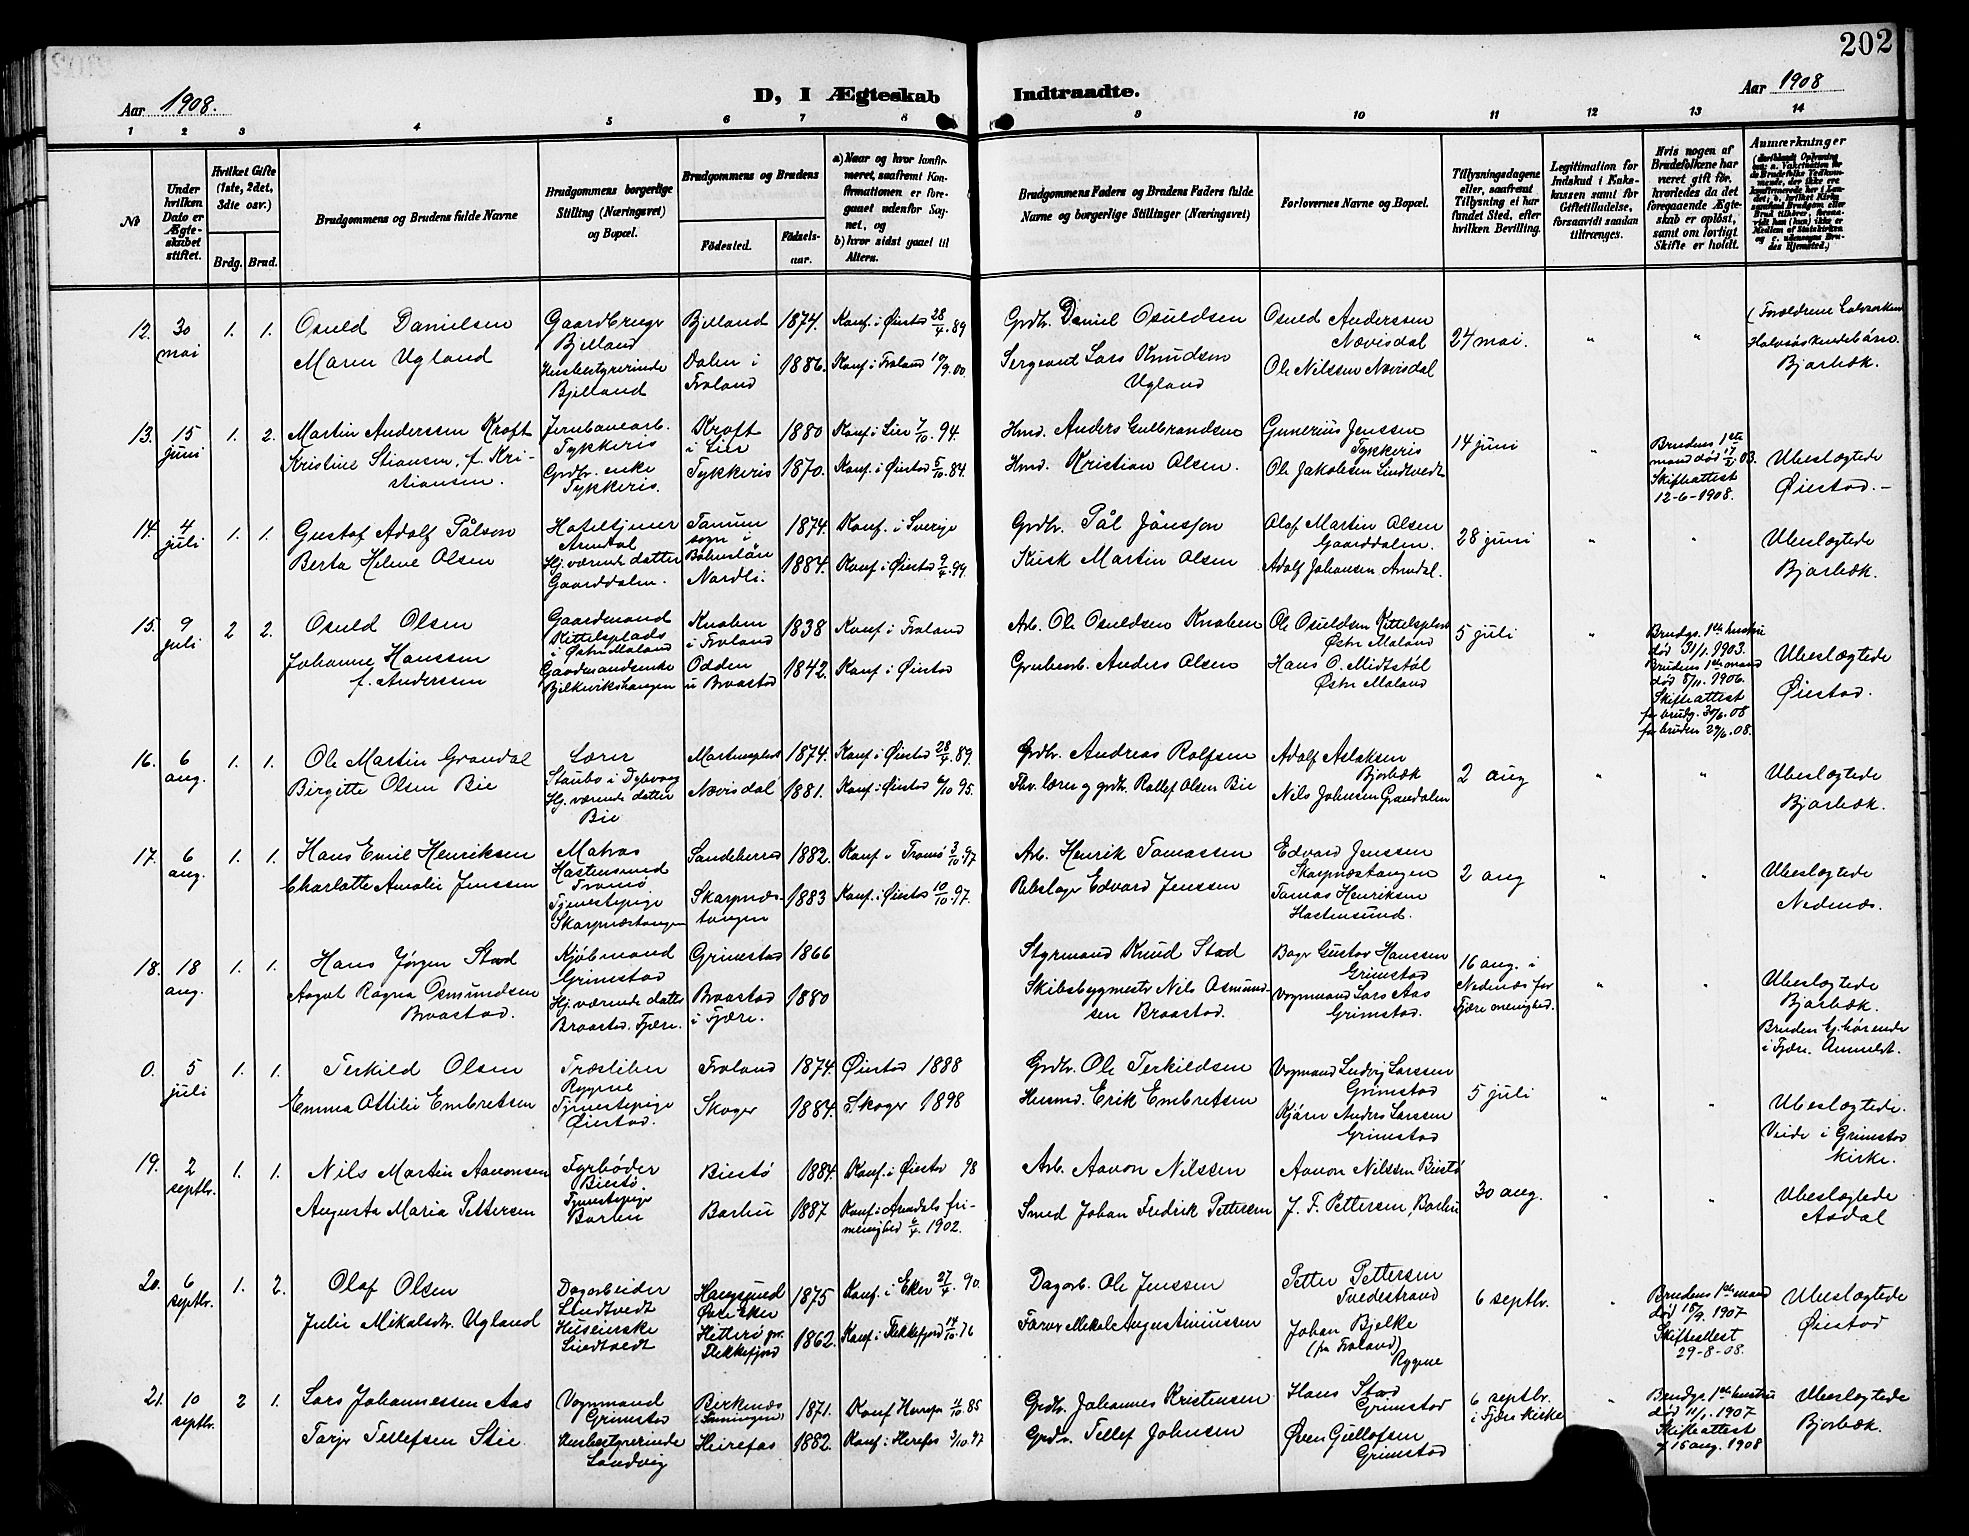 202
Aar 1908.
D, I Ægteskab Indtraadte.
Aar 1908
1 2 3 4 5 6 7 8 9 10 11 12 13 14
No
Under hvilken Dato er Ægteskabet stiftet.
Hvilket Gifte (1ste, 2det, 3die osv.)
Brdg. Brud.
Brudgommens og Brudens fulde Navne
Brudgommens borgerlige Stilling (Næringsvei) og Bopæl.
Brudgommens og Brudens
Födested.
Födselsaar.
a) Naar og hvor konfirmeret, saafremt Konfirmationen er foregaaet udenfor Sognet, og
b) hvor sidst gaaet til Alters.
Brudgommens Faders og Brudens Faders fulde Navne og borgerlige Stillinger (Næringsvei)
Forlovernes Navne og Bopæl.
Tillysningsdagene eller, saafremt Tillysning ei har fundet Sted, efter hvilken Bevilling.
Legitimation for Indskud i Enkekassen samt for Giftetilladelse, forsaavidt saadan tiltrænges.
Hvis nogen af Brudefolkene har været gift för, hvorledes da det foregaaende Ægteskab er oplöst, samt om lovligt Skifte er holdt.
Anmærkninger
12. 30 mai 1. 1.
Osuld Danielsen
Maren Ugland
Gaardbruger Bjelland
Husbestyrerinde Bjelland
Bjelland 1874. Konf. i Øiestad 28/4 89
Dalen i Froland 1886. Konf. i Froland 10/9. 00.
Grdbr. Daniel Osuldsen
Sergeant Lars Knudsen Ugland
Osuld Anderssen Nævisdal
Ole Nilssen Nævisdal
24 mai. " "
Halvsøskendebørn.
Bjorbæk.
13. 15 juni 1. 2.
Martin Anderssen Kroft
Kristine Stiansen, f. Kristiansen.
Jernbanearb. Tykkeris
Grdbr. enke Tykkeris.
Kroft i Lier 1880 Konf. i Lier 7/10. 94.
Tykkeris 1870. Konf. i Øiestad 5/10. 84.
Hmd. Anders Gulbrandsen
Hmd. Kristian Olsen.
Gunerius Jenssen Tykkeris
Ole Jakobsen Lindtvedt
14 juni "
Brudens 1ste mand død 03.
Skifteattest 12-6-1908.
Ubeslægtede
Øiestad.-
14. 4 juli 1. 1.
Gustaf Adolf Pålson
Berta Helene Olsen
Hoteltjener Arendal
Hj. værende datter Gaarddalen.
Tanum sogn i Bohuslän 1874. Konf. i Sverige
Nordli. 1884. Konf. i Øiestad 9/4. 99.
Grdbr. Pål Jönsson
Kusk Martin Olsen
Olaf Martin Olsen Gaarddalen.
Adolf Johansen Arendal.
28 juni " "
Ubeslægtede
Bjorbæk.
15. 9 juli 2 2.
Osuld Olsen
Johanne Hanssen f. Anderssen
Gaardmand Kittelsplads i Østre Maland
Gaardmandsenke
Knaben i Froland 1838 Konf i Froland
Odden i Braastad 1842. Konf i Øiestad
Arb. Ole Osuldsen Knaben
Grubearb. Anders Olsen
Ole Osuldsen Kittelsplads Østre Maland
Hans O. Midtstøl Østre Maland
5 juli "
Brudgs. 1ste hustru død 31/1. 1903.
Brudens 1ste mand død 8/11. 1906.
Skifteattest for brudg. 30/6. 08
for bruden 27/6. 08.
Ubeslægtede
Øiestad.
16. 6 aug. 1. 1.
Ole Martin Grandal
Birgitte Olsen Bie
Lærer Staubø i Dybvaag
Hj. værende datter Bie
1874. Konf. i Øiestad 28/4. 89.
Nævisdal 1881. Konf. i Øiestad 6/10 95.
Grdbr. Andreas Rolfsen
Fhv. lærer og grdbr. Rollef Olsen Bie
Adolf Aslaksen Bjorbæk
Nils Johnsen Grandalen
2 aug " "
Ubeslægtede
Bjorbæk.
17. 6 aug. 1. 1.
Hans Emil Henriksen
Charlotte Amalie Jenssen
Matros Hastensund Tromø
Tjenestepige Skarpnæstangen
Sandeherred 1882. Konf. i Tromø 3/10. 97
Skarpnæstangen 1883 Konf. i Øiestad 10/10. 97.
Arb. Henrik Tomassen
Rebslager Edvard Jenssen
Edvard Jenssen Skarpnæstangen
Tomas Henriksen Hastensund.
2 aug " "
Ubeslægtede
Nedenæs.
18. 18 aug. 1. 1.
Hans Jørgen Stad
Aagot Ragna Osmundsen Braastad.
Kjøbmand Grimstad
Hj. værende datter Braastad. Fjære.
Grimestad 1866
Braastad i Fjære. 1880
Styrmand Knud Stad
Skibsbygmester Nils Osmundsen Braastad.
Bager Gustav Hanssen Grimstad
Vognmand Lars Aas Grimstad.
16 aug. i Nedenæs for Fjære menighed. " "
Ubeslægtede
Bjorbæk.
Bruden hj. hørende i Fjære. Anmeldt.
0. 5 juli 1. 1.
Terkild Olsen
Emma Ottilie Embretsen
Træsliber Rygene
Tjenestepige Øiestad.
Froland 1874. Øiestad 1888
Skoger 1884. Skoger 1898
Grdbr. Ole Terkildsen
Husmd. Erik Embretsen
Vognmand Ludvig Larssen Grimstad
Bjørn Anders Larssen Grimstad
5 juli " "
Ubeslægtede.
Viede i Grimstad kirke.
19. 2 septbr. 1. 1.
Nils Martin Aavonsen
Augusta Maria Pettersen
Fyrbøder Biestø.
Tjenestepige Barbu
Biestø 1884. Konf. i Øiestad 98
Barbu 1887 Konf. i Arendals frimenighed 6/4. 1902.
Arb. Aavon Nilssen
Smed Johan Fredrik Pettersen
Aavon Nilssen Biestø
J. F. Pettersen, Barbu
30 aug. " "
Ubeslægtede
Asdal
20. 6 septbr. 1. 2.
Olaf Olsen
Julie Mikalsdtr. Ugland
Dagarbeider Lindtvedt
Husmenke Lindtvedt
Haugsund Øvre Eker 1875 Konf. i Eker 27/4. 90
Hitterø pr. Flekkefjord 1862. Konf. i Flekkefjord 14/10. 76
Dagarb. Ole Jenssen
Farver Mikal Augustiniussen
Petter Pettersen Tvedestrand
Johan Bjelke (fra Froland) Rygene
6 septbr. "
Brudens 1ste mand død 15/9. 1907
Skifteattest 29-8-08.
Ubeslægtede
Øiestad
21. 10 septbr. 2 1.
Lars Johannessen Aas
Torje Tellefsen Stie
Vognmand Grimstad
Husbestyrerinde Landvig
Birkenæs 1871. Konf Herefos 11/10. 85
Heirefos 1882. Konf. i Herefos 3/10. 97
Grdbr. Johannes Kristensen
Grdbr. Tellef Johnsen
Hans Stad Grimstad
Øven Gullofsen Grimstad
6 septbr. i Fjære kirke "
Brudgs. 1ste hustru død 11/1. 1907
Skifteattest af 15 aug. 1908
Ubeslægtede
Bjorbæk.